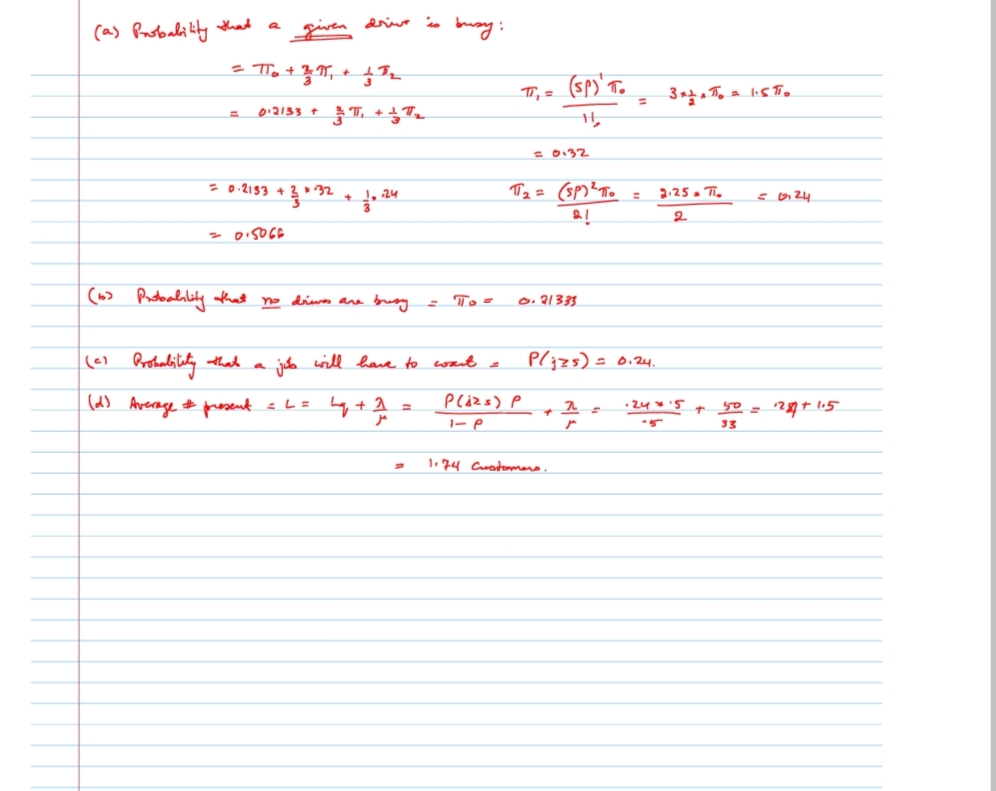 (a) Probability that a given drive is busy:
= π₀ + 2/3 π₁ + 1/3 π₂
π₁ = (sρ)¹ π₀ / 1! = 3 × 1/2 × π₀ = 1.5 π₀
= 0.2133 + 2/3 π₁ + 1/3 π₂
= 0.32
= 0.2133 + 2/3 × .32 + 1/3 × .24
π₂ = (sρ)² π₀ / 2! = 2.25 × π₀ / 2 = 0.24
= 0.5066
(b) Probability that no drives are busy = π₀ = 0.21333
(c) Probability that a job will have to wait = P(j≥s) = 0.24.
(d) Average # present = L = Lq + λ/μ = P(j≥s) ρ / 1-ρ + λ/μ = .24 × .5 / .5 + 50/33 = .24 + 1.5
= 1.74 Customers.